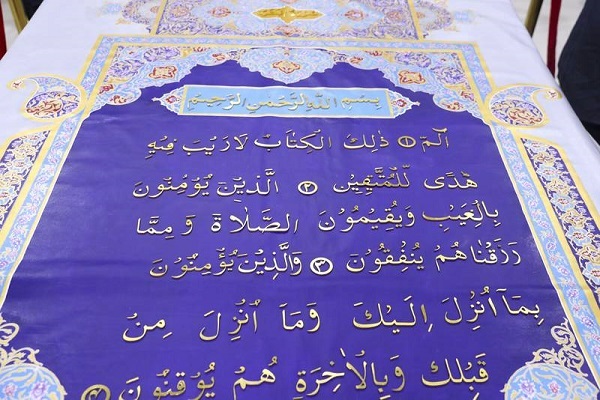 بِسْمِ اللَّهِ الرَّحْمَنِ الرَّحِيمِ
الٓمٓ ۱ ذٰلِكَ الْكِتَابُ لَارَيْبَ فِيْهِ
هُدًى لِّلْمُتَّقِيْنَ ۲ الَّذِيْنَ يُؤْمِنُوْنَ
بِالْغَيْبِ وَيُقِيْمُوْنَ الصَّلَاةَ وَمِمَّا
رَزَقْنَاهُمْ يُنْفِقُوْنَ ۳ وَالَّذِيْنَ يُؤْمِنُوْنَ
بِمَآ اُنْزِلَ اِلَيْكَ وَمَآ اُنْزِلَ مِنْ
قَبْلِكَ وَبِالْاٰخِرَةِ هُمْ يُوْقِنُوْنَ ۴